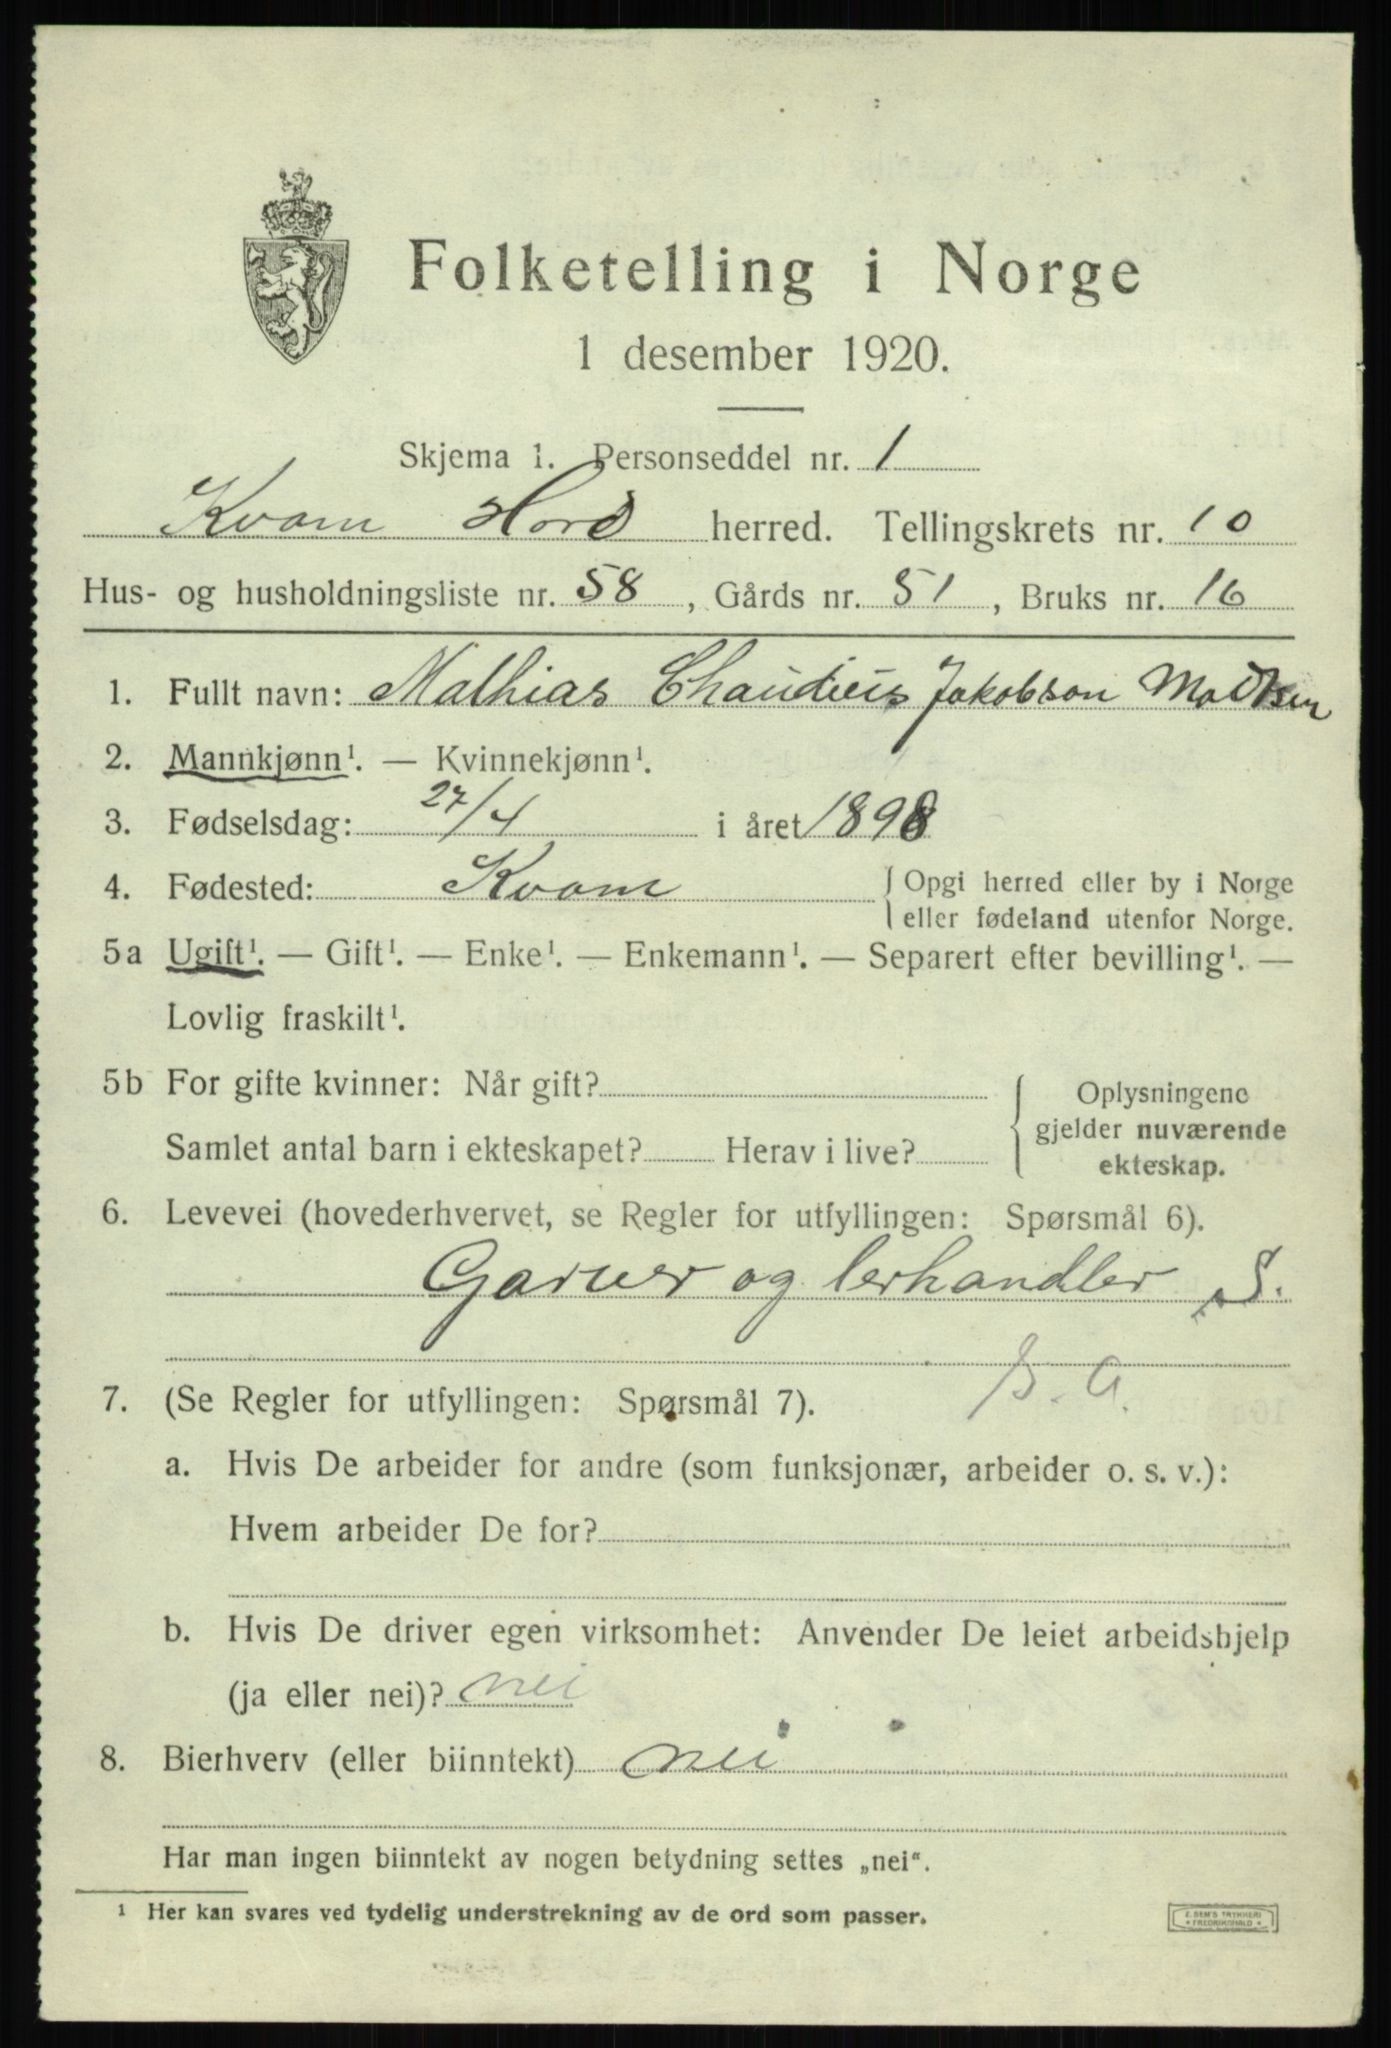 Folketelling i Norge
1 desember 1920.
Skjema 1. Personseddel nr. 1
Kvam Hord herred. Tellingskrets nr. 10
Hus- og husholdningsliste nr. 58, Gårds nr. 51, Bruks nr. 16
1. Fullt navn: Mathias Chaudius Jakobson Madsen
2. Mannkjønn¹. — Kvinnekjønn¹.
3. Fødselsdag: 27/4 i året 1898
4. Fødested: Kvam { Opgi herred eller by i Norge
eller fødeland utenfor Norge.
5a Ugift¹. — Gift¹. — Enke¹. — Enkemann¹. — Separert efter bevilling¹. —
Lovlig fraskilt¹.
5b For gifte kvinner: Når gift?
Samlet antal barn i ekteskapet? Herav i live?
Oplysningene
gjelder nuværende
ekteskap.
6. Levevei (hovederhvervet, se Regler for utfyllingen: Spørsmål 6).
Garver og lerhandler S.
7. (Se Regler for utfyllingen: Spørsmål 7).
a. Hvis De arbeider for andre (som funksjonær, arbeider o. s. v.):
Hvem arbeider De for?
b. Hvis De driver egen virksomhet: Anvender De leiet arbeidshjelp
(ja eller nei)? nei
8. Bierhverv (eller biinntekt) nei
Har man ingen biinntekt av nogen betydning settes „nei“.
¹ Her kan svares ved tydelig understrekning av de ord som passer.
E. SEM'S TRYKKERI
FREDRIKSHALD